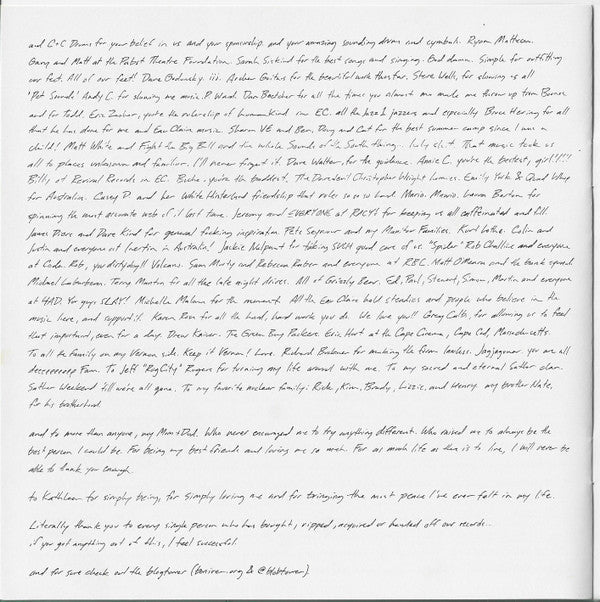 and C+C Drums for your belief in us and your sponsorship and your amazing sounding drums and cymbals. Ryan Matteson.
Gary and Matt at the Pabst Theatre Foundation. Sarah Siskind for the best songs and singing. Brad       Simple for outfitting
our feet. All of our feet! Dave              iii. Archer Guitars for the beautiful work thus far. Steve Wall, for showing us all
'Pet Sounds' Andy C. for showing me music. P. Ward. Dan              for all the times you almost me made me throw up from
and for Todd. Eric Zachar, you're the          of humankind                EC. all the Jazz 1 jazzers and especially Bruce Hering for all
that he has done for me and Eau Claire music. Sharon VE and Ben, Doug and Cat for the best summer camp since I was a
child! Matt White and Fight the Big Bull and the whole Sounds of the South thing.                That music took us
all to places unknown and familiar. I'll never forget it. Dave Walter, for the guidance. Annie C. you're the bestest, girl!!!!!
Billy at Revival Records in EC.          you're the baddest. The Daredevil Christopher Wright       Emily York & Quad Whip
for Australia. Casey D and her White Hinterland friendship that rules so so so hard. Mario. Mario. Laura Barton for
spinning the most accurate web of it last time. Jeremy and EVERYONE at RACY'S for keeping us all caffeinated and full.
James Diers and Dave Kind for general fucking inspiration Pete Seymour and my Mentor Families. Kurt Lathe. Colin and
Justin and everyone at Inertia in Australia! Jackie Nalpant for taking SUCH good care of us. "Spider" Rob Challice and everyone
at Coda. Rob, you dirty dog!! Volcano. Sam Marty and Rebecca Raber and everyone at RBC. Matt O'Meara and the         spread.
Michael Laburbeau. Terry Martin for all the late night drives. All of Grizzly Bear, Ed, Paul, Stewart, Simon, Martin and everyone
at 4AD. You guys SLAY! Michelle Malone for the moments. All the Eau Claire hold steadies and people who believe in the
music here, and support it. Karen Rose for all the hard, hard work you do. We love you!! Greg Calbi, for allowing us to feel
that important, even for a day. Drew Kaiser. The Green Bay Packers. Eric Hart at the Cape Cinema, Cape Cod, Massachusetts.
To all the family on my Vernon side. Keep it Vernon! Love. Richard Buckner for making the form lawless. Jagjaguwar you are all
deeeeeeeep Fam. To Jeff "RogCity" Rogers for turning my life around with me. To my sacred and eternal Sather clan.
Sather Weekend till we're all gone. To my favorite nuclear family. Rick, Kim, Brady, Lizzie, and Henry my brother Nate,
for his brotherhood.

and to more than anyone, my Mom + Dad. Who never encouraged me to try anything different. Who raised me to always be the
best person I could be. For being my best friends and loving me so much. For as much life as there is to live, I will never be
able to thank you enough.

to Kathleen for simply being, for simply loving me and for bringing the most peace I've ever felt in my life.

Literally thank you to every single person who has bought, ripped, acquired or bended off our records..
if you got anything out of this, I feel successful.

and for sure check out the blogtower {boniver.org & @blobtower}